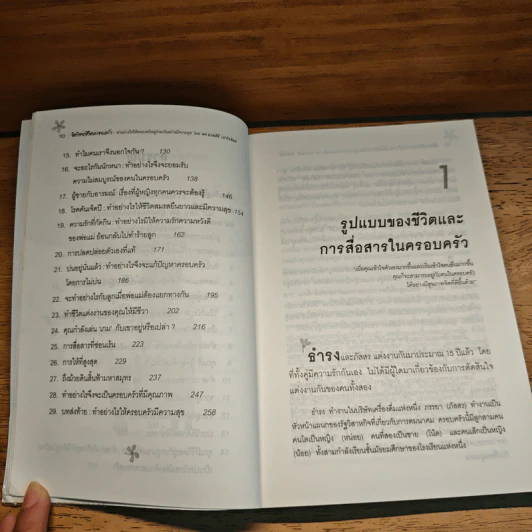 15. ทำไมคนเราจึงนอกใจกัน ? 130
16. จะอะไรกันนักหนา : ทำอย่างไรจึงจะยอมรับ
ความไม่สมบูรณ์ของคนในครอบครัว 138
17. ผู้ชายกับอารมณ์ เรื่องที่ผู้หญิงทุกคนควรจะต้องรู้ 146
18. โรคคันเจ็ดปี : ทำอย่างไรให้ชีวิตสมรสยืนยาวและมีความสุข 154
19. ความรักที่กัดกิน : ทำอย่างไรมิให้ความรักความหวังดี
ของพ่อแม่ ย้อนกลับไปทำร้ายลูก 162
20. การปลดปล่อยตัวเองที่แท้ 171
21. บ่นอยู่นั่นแล้ว : ทำอย่างไรจึงจะแก้ปัญหาครอบครัว
โดยการไม่บ่น 186
22. จะทำอย่างไรกับลูกเมื่อพ่อแม่ต้องแยกทางกัน 195
23. ทำชีวิตแต่งงานของคุณให้มีชีวา 202
24. คุณกำลังเล่น 'เกม' กับเขาอยู่หรือเปล่า ? 216
25. การสื่อสารที่ซ่อนเร้น 223
26. การให้ที่สูงสุด 229
27. ถึงม้วยดินสิ้นฟ้ามหาสมุทร 237
28. ทำอย่างไรจึงจะเป็นครอบครัวที่มีคุณภาพ 247
29. บทส่งท้าย : ทำอย่างไรให้ครอบครัวมีความสุข 258
1
รูปแบบของชีวิตและ
การสื่อสารในครอบครัว
ธำรง และภัสสร แต่งงานกันมาประมาณ 15 ปีแล้ว โดย
ที่ทั้งคู่มีความรักกันเอง ไม่ได้มีผู้ใดมาเกี่ยวข้องกับการตัดสินใจ
แต่งงานกันของคนทั้งสอง
ธำรง ทำงานในบริษัทเครื่องดื่มแห่งหนึ่ง ภรรยา (ภัสสร) ทำงานเป็น
หัวหน้าแผนกของรัฐวิสาหกิจที่เกี่ยวกับการคมนาคม ครอบครัวนี้มีลูกสามคน
คนโตเป็นหญิง (หน่อย) คนที่สองเป็นชาย (โน้ต) และคนเล็กเป็นหญิง
(น้อง) ทั้งสามกำลังเรียนชั้นมัธยมศึกษาของโรงเรียนแห่งหนึ่ง